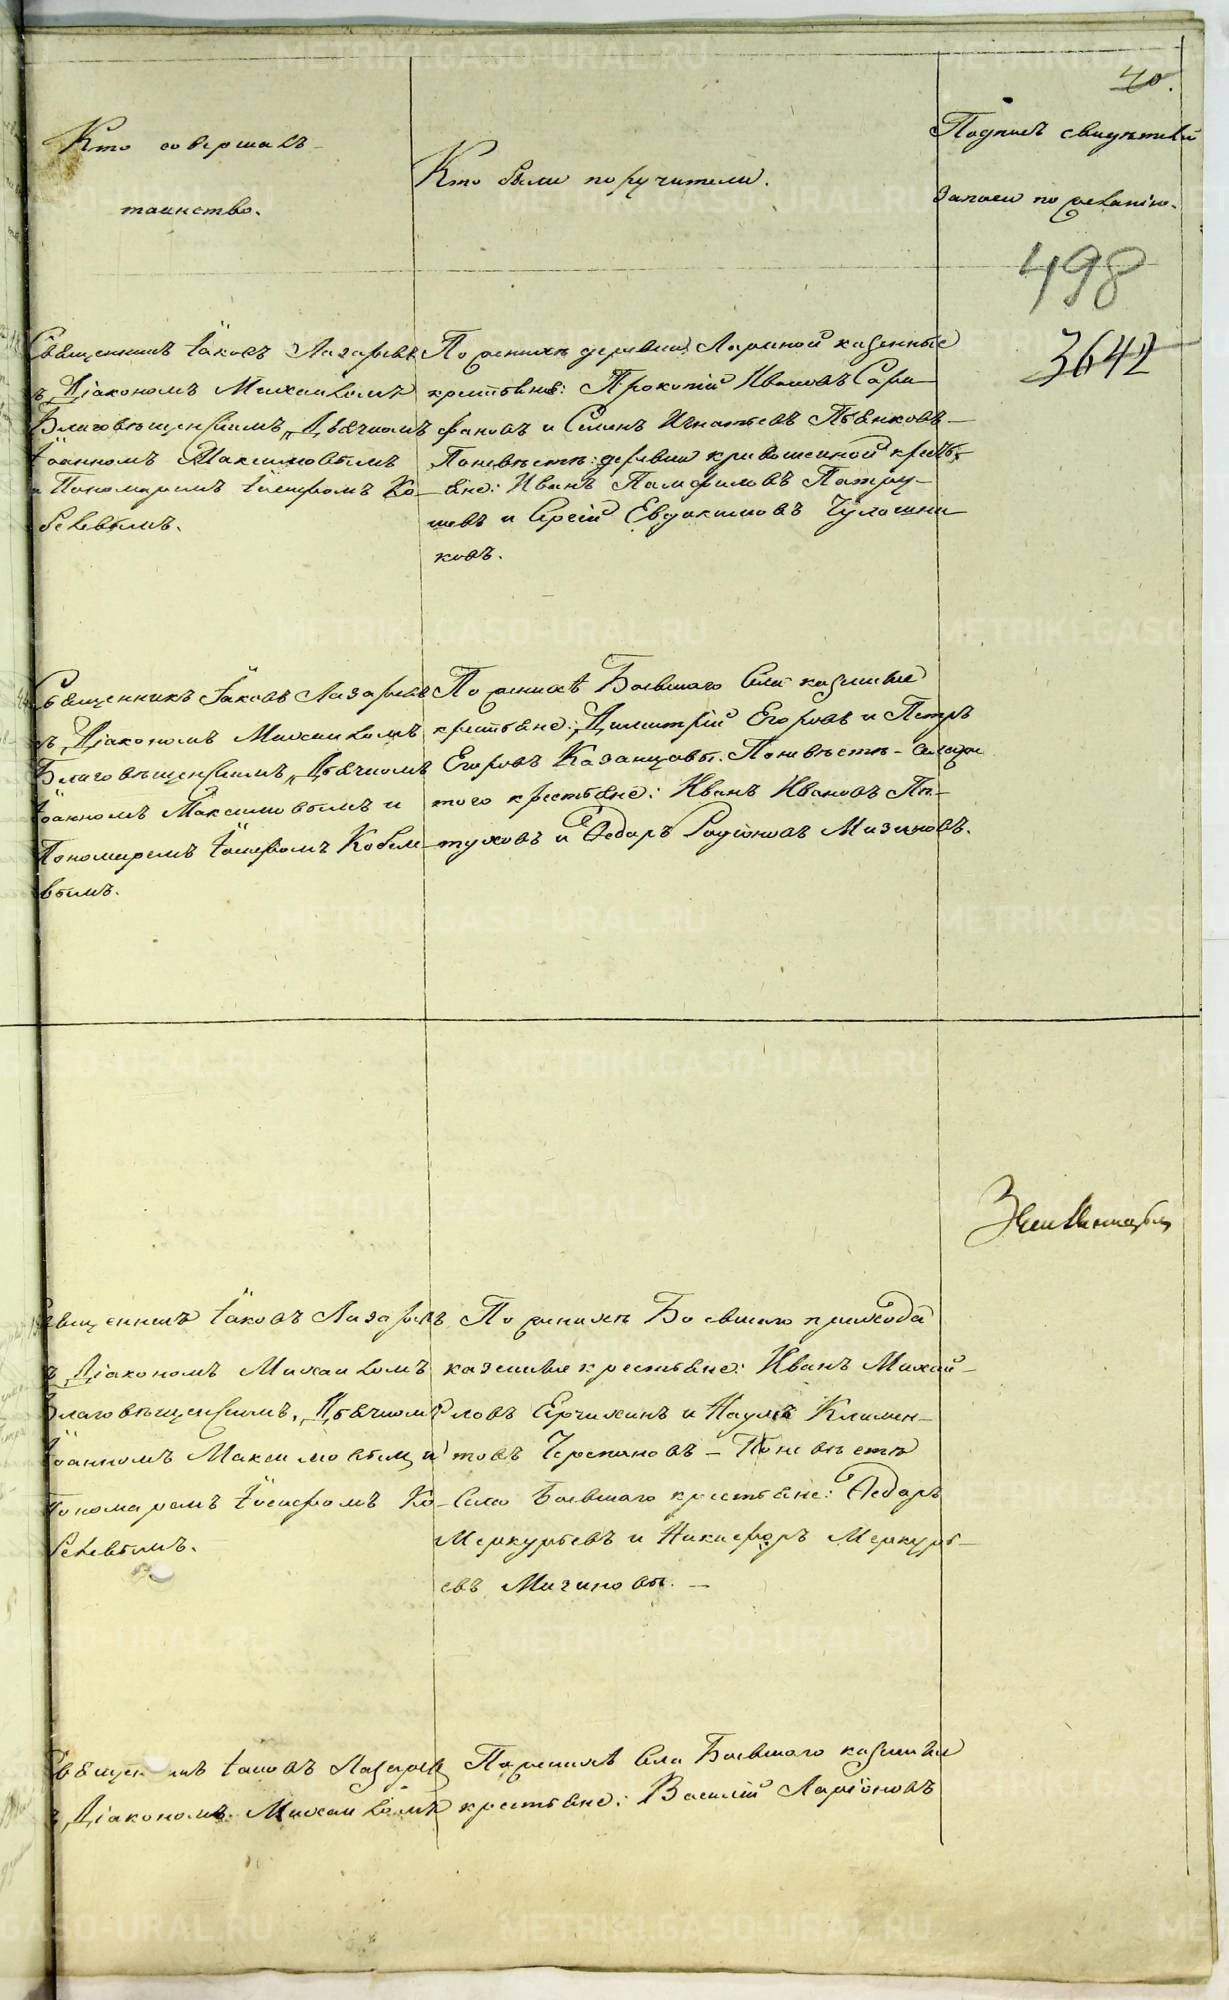 40.
Кто совершалъ
таинство.
Кто были поручители.
Подпись свидѣтелей
записи по желанію.
498
3642
Священникъ Іаковъ Лазаревъ
съ Діакономъ Михаиломъ
Благовѣщенскимъ, Дьячкомъ
Іоанномъ Максимовымъ
и Пономаремъ Іосифомъ Ко-
белевымъ.
По женихѣ деревни казенные
крестьяне: Прокопій Ивановъ Сара-
фановъ и Семенъ Игнатьевъ Пьянковъ –
По невѣстѣ: деревни Кривошеиной кресть-
яне: Иванъ Памфиловъ Патру-
шевъ и Сергій Евдокимовъ Чулошни
ковъ.
Священникъ Іаковъ Лазаревъ
съ Діакономъ Михаиломъ
Благовѣщенскимъ, Дьячкомъ
Іоанномъ Максимовымъ и
Пономаремъ Іосифомъ Кобеле-
вымъ.
По женихѣ Боевскаго Села казенные
крестьяне: Димитрій Егоровъ и Петръ
Егоровъ Казанцовы. По невѣстѣ –
того крестьяне: Иванъ Ивановъ Пѣ-
туховъ и Ѳедоръ Родіоновъ Мизиновъ.
Священникъ Іаковъ Лазаревъ
съ Діакономъ Михаиломъ
Благовѣщенскимъ, Дьячкомъ
Іоанномъ Максимовымъ и
Пономаремъ Іосифомъ Ко-
белевымъ.
По женихѣ Боевскаго прихода
казенные крестьяне: Иванъ Михай-
ловъ и Наумъ Климен-
товъ Черепановъ – По невѣстѣ
Села Боевскаго крестьяне: Ѳедоръ
Меркурьевъ и Никифоръ Меркурь-
евъ Мизиновы. –
Священникъ Іаковъ Лазаревъ
съ Діакономъ Михаиломъ
По женихѣ Села Боевскаго казенные
крестьяне: Василій Ларіоновъ
METRIKI.GASO-URAL.RU